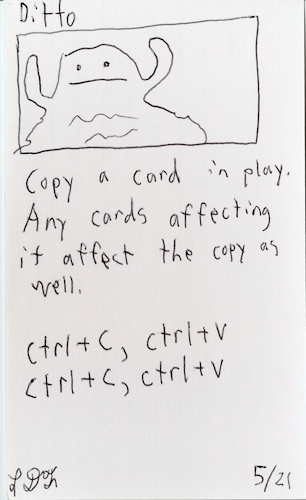 Ditto
Copy a card in play.
Any cards affecting
it affect the copy as
well.
ctrl+C, ctrl+V
ctrl+C, ctrl+V
5/21